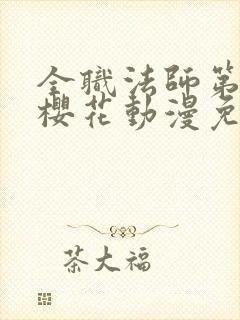 全職法師第
櫻花動漫免
茶大福